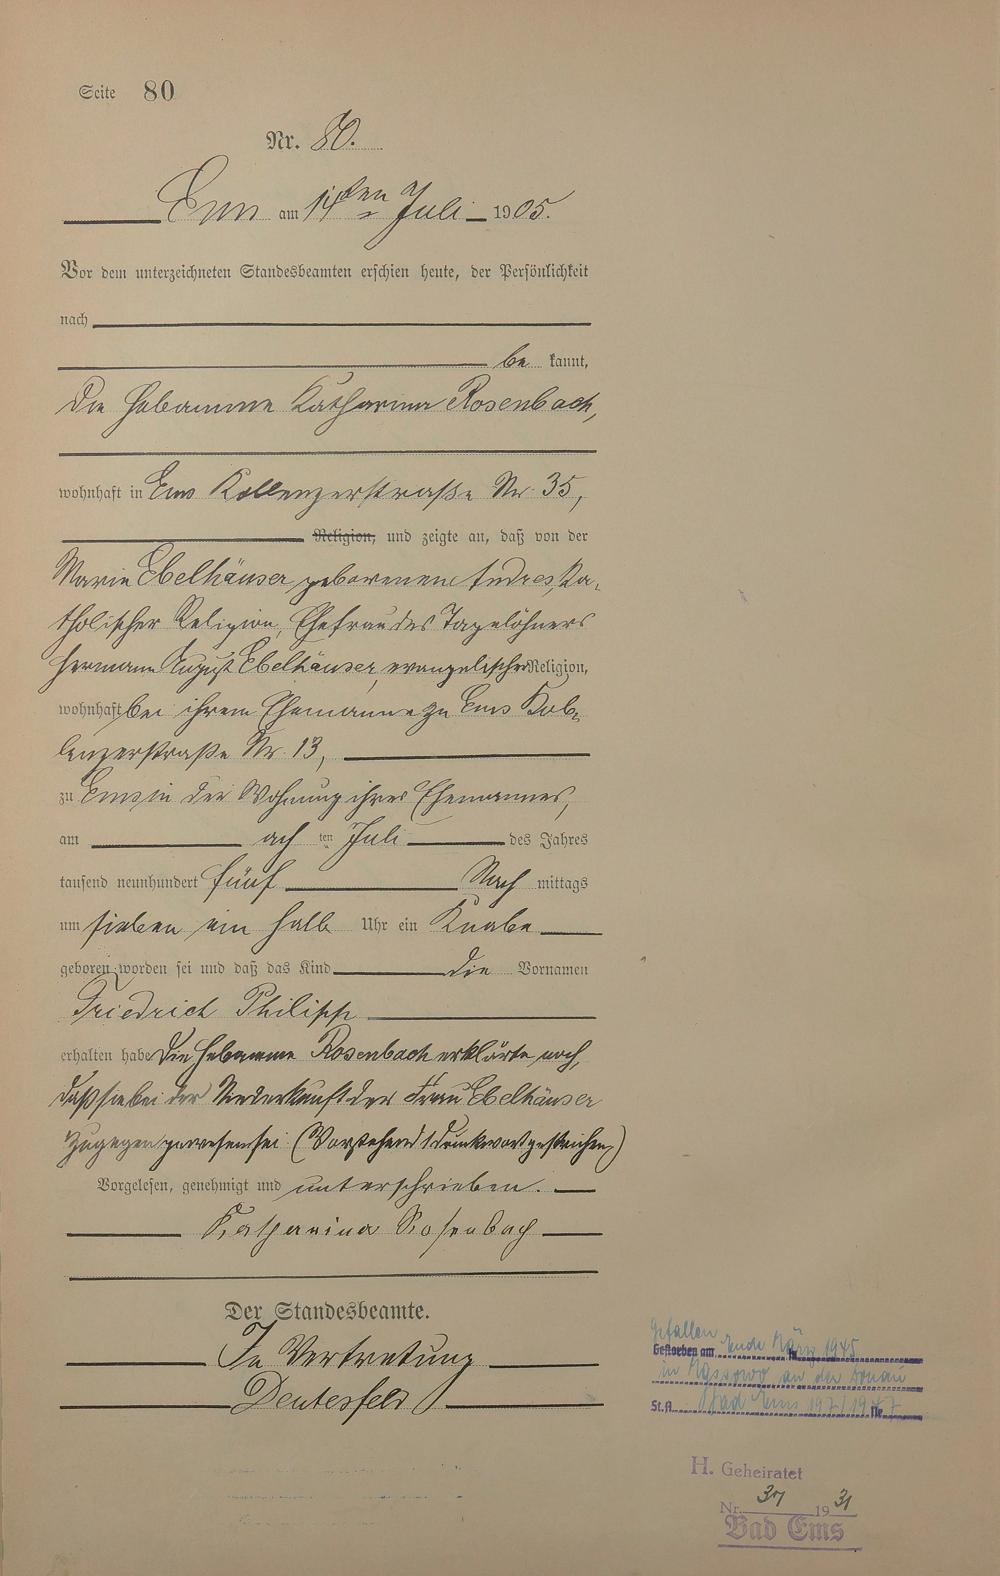 Seite 80
Nr. 80.
Ems am 14ten Juli 1905.
Vor dem unterzeichneten Standesbeamten erschien heute, der Persönlichkeit
nach
be kannt,
die Hebamme Katharina Rosenbach,
wohnhaft in Ems Koblenzerstraße Nr. 35,
Religion, und zeigte an, daß von der
Marie Ebelhäuser geborenen Andres, ka-
tholischer Religion, Ehefrau des Tagelöhners
Hermann August Ebelhäuser, evangelischer Religion,
wohnhaft bei ihrem Ehemanne zu Ems Kob-
lenzerstraße Nr. 13,
zu Ems in der Wohnung ihres Ehemannes,
am ach ten Juli des Jahres
tausend neunhundert fünf Nach mittags
um sieben ein halb Uhr ein Knabe
geboren worden sei und daß das Kind die Vornamen
Friedrich Philipp
erhalten habe Die Hebamme Rosenbach erklärte noch,
daß sie bei der Niederkunft der Frau Ebelhäuser
zugegen gewesen sei (Vorstehend 1 Druckwort gestrichen)
Vorgelesen, genehmigt und unterschrieben.
Katharina Rosenbach
Der Standesbeamte.
In Vertretung
Deutesfeld
Gefallen
Gestorben am Ende März 1945
in an der Donau
St.A. Bad Ems 197/1947 Nr.
H. Geheiratet
Nr. 37 1931
Bad Ems